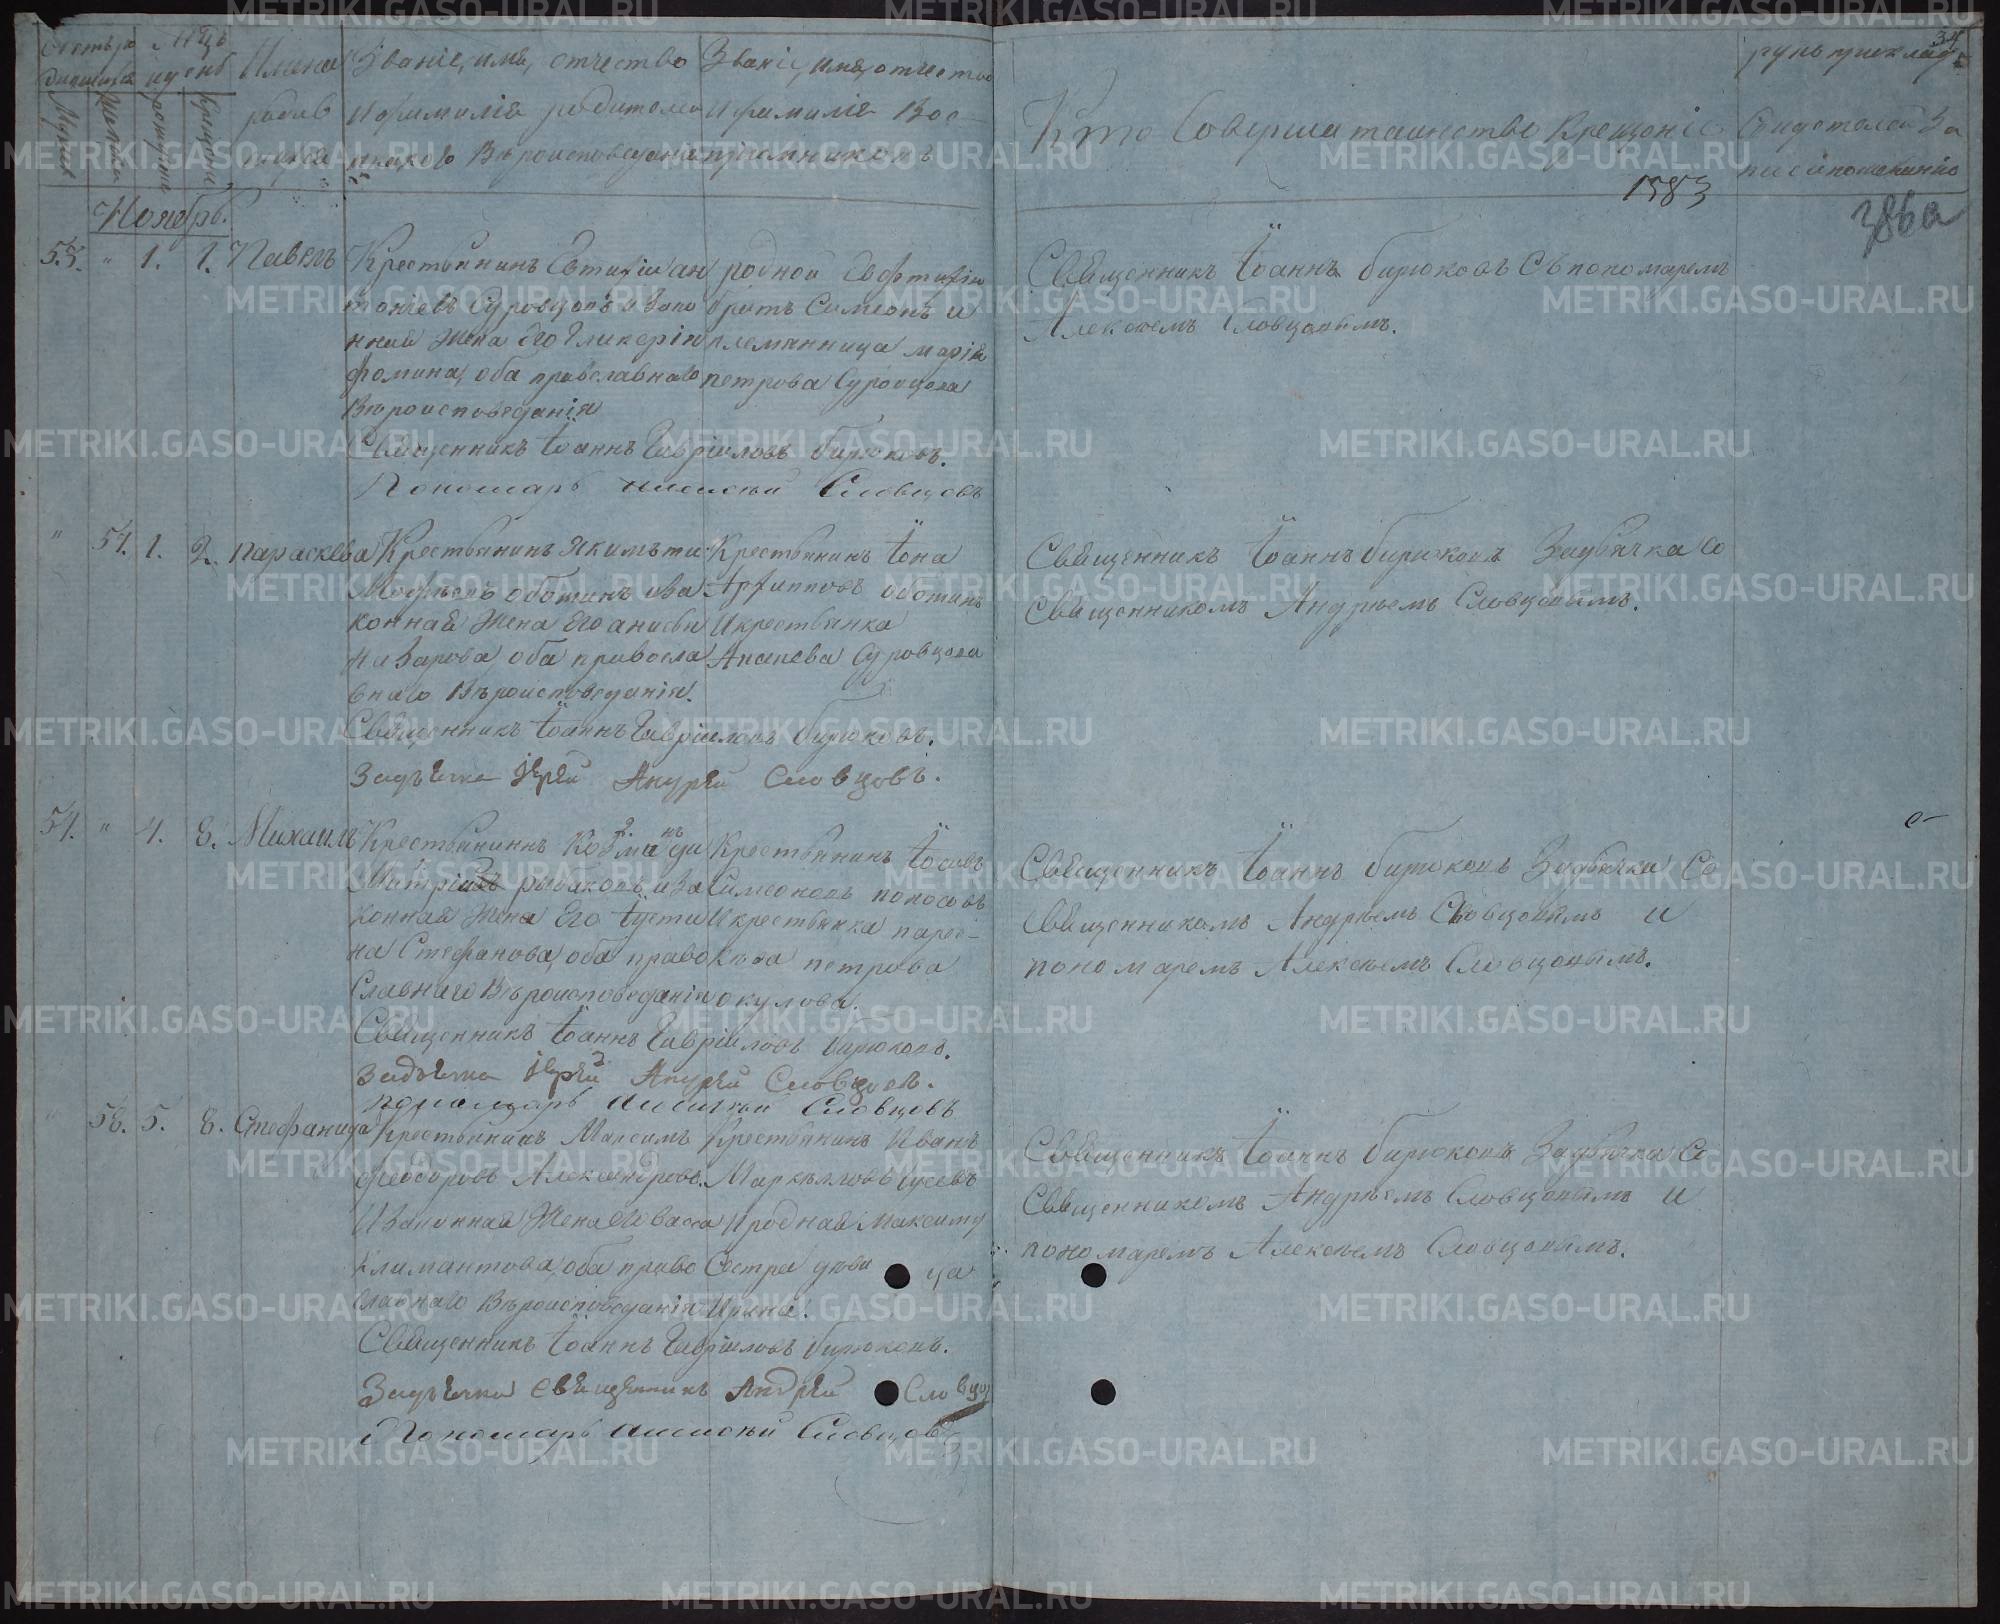 Счетъ ро
дившихся
Мужеска
Женска
Мцъ
и день
рожденія
крещенія
Имена
родив
шихся
Званіе, имя, отчество
и фамилія родителей
и какого Вѣроисповеданія
Званіе, имя, отчество
и фамилія Вос-
пріемниковъ
Кто Совершал таинство Крещеніе
1583
34
рукоприклад
Свидетелей За
писи по желанію
386а
Ноябрь.
53. " 1. 1. Павелъ
Крестьянинъ Евтифій ан
тоніевъ Суровцовъ и зако
нная жена его Гликерія
фомина, оба православнаго
Вѣроисповеданія
родной Евфтифію
братъ Симеонъ и
племянница марія
петрова Суровцова
Священникъ Іоаннъ бирюковъ Съ пономаремъ
Алексѣемъ Словцовымъ.
Священникъ Іоаннъ Гавріиловъ бирюковъ.
Пономарь Алексѣй Словцовъ
" 57. 1. 2. параскева
Крестьянинъ Якимъ ти
Мофѣевъ оботинъ и за
конная жена его анисья
Назарова, оба правосла
внаго Вѣроисповеданія.
Крестьянинъ Іона
Архиповъ оботинъ
и крестьянка
Суровцова
Священникъ Іоаннъ бирюковъ Задьячка со
Священникомъ Андрѣемъ Словцовымъ.
Священникъ Іоаннъ Гавріиловъ бирюковъ.
Задьячка Іерей Андрей Словцовъ.
54. " 4. 8. Михаилъ
Крестьянинъ Козма ди
митріевъ рыбаковъ, и за
конная жена его Іусти
на Стефанова, оба право
славнаго Вѣроисповеданія
Крестьянинъ Іосифъ
Симеоновъ попосовъ
и крестьянка парас-
кѣва петрова
окулова.
Священникъ Іоаннъ бирюковъ Задьячка Со
Священникомъ Андрѣемъ Словцовымъ и
пономаремъ Алексѣемъ Словцовымъ.
Священникъ Іоаннъ Гавріиловъ бирюковъ.
Задьячка Іерей Андрей Словцовъ.
пономарь Алексѣй Словцовъ
" 58. 5. 8. Стефанида
Крестьянинъ Максимъ
феодоровъ Александровъ.
и законная жена его васса
Климантова, оба право
славнаго Вѣроисповеданія
Крестьянинъ Иванъ
Маркѣлловъ гусевъ
и родная Максиму
Сестра дѣвица
Ирина.
Священникъ Іоаннъ бирюковъ Задьячка Со
Священникомъ Андрѣемъ Словцовымъ и
пономаремъ Алексѣемъ Словцовымъ.
Священникъ Іоаннъ Гавріиловъ бирюковъ.
Задьячка Священникъ Андрей Словцов
Пономарь Алексѣй Словцовъ
METRIKI.GASO-URAL.RU